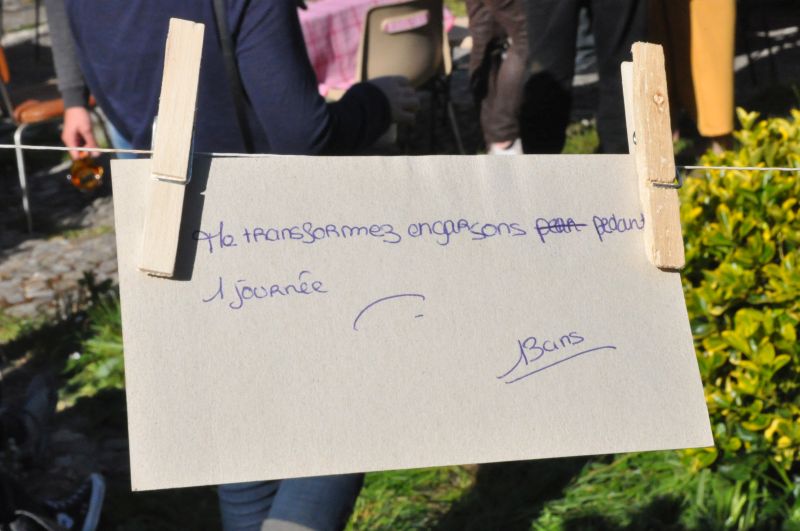 Me transformez engarsons pedant
1 journée
13ans